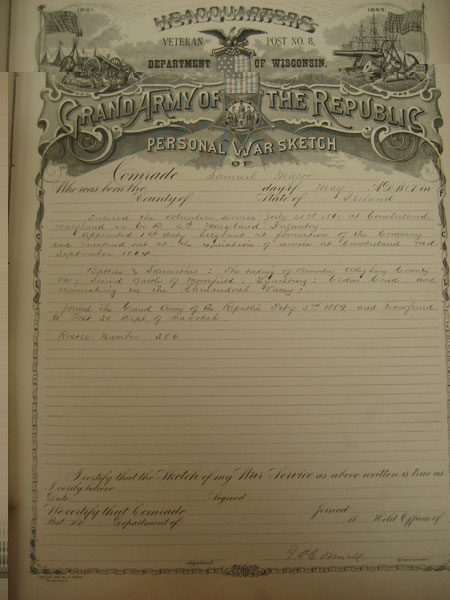 1861. 1865.
HEADQUARTERS
VETERAN POST NO. 8,
DEPARTMENT OF WISCONSIN.
GRAND ARMY OF THE REPUBLIC
PERSONAL WAR SKETCH
OF
Comrade Samuel Mason
Who was born the day of May A.D. 1817 in
County of State of Ireland
Entered the volunteer service July 1861 at Cumberland
Maryland in Co B 2d Maryland Infantry.
Appointed 1st Duty Sergeant at formation of the Company
and mustered out at the expiration of service at Cumberland Md.
September 1864.
Battles & Skirmishes: The taking of County
Va; Second Battle of Moorefield; Lynchburg; Cedar Creek, and
in the Shenandoah Valley;
Joined the Grand Army of the Republic Feby 2nd 1884 and transferred
to Post 30 Dept of
Roster Number 386
I certify that the Sketch of my War Service as above written is true as
I verily believe
Date Signed
We certify that Comrade Joined
Post No. Department of 18 Held Offices of